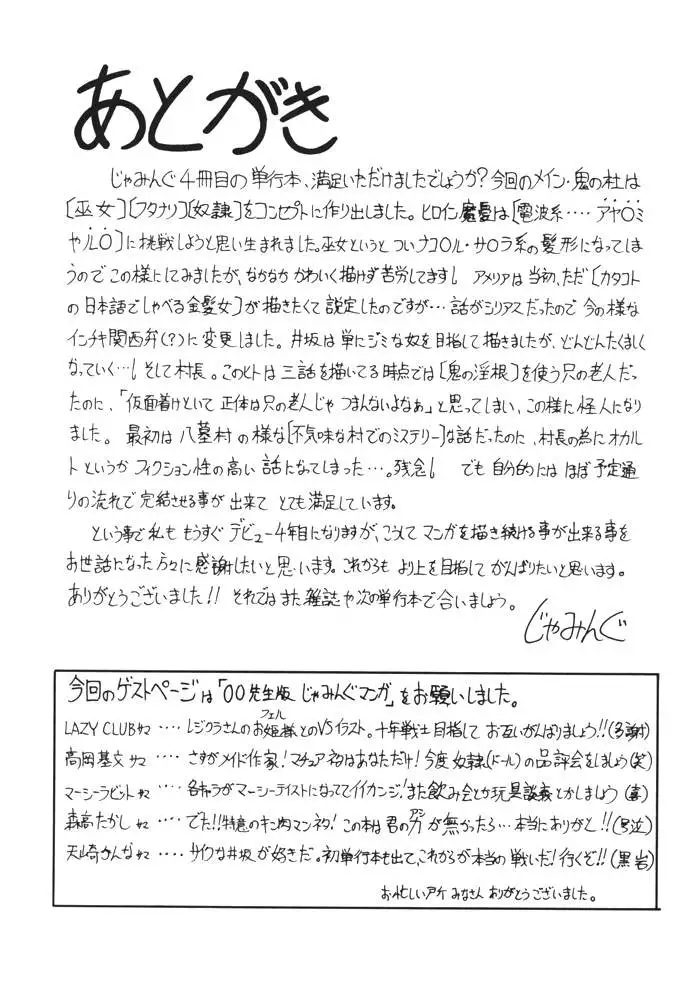 あとがき
じゃみんぐ4冊目の単行本、満足いただけましたでしょうか?今回のメイン・鬼の杜は
[巫女][フタナリ][奴隷]をコンセプトに作り出しました。ヒロイン魔憂は[電波系‥‥アヤ〇ミ
やルO]に挑戦しようと思い生まれました。巫女というとついナコ〇ル・サ〇ラ系の髪形になってしま
うのでこの様にしてみましたが、なかなかかわいく描けず苦労してます! アメリアは当初、ただ[カタコト
の日本語でしゃべる金髪女]が描きたくて設定したのですが…話がシリアスだったので今の様な
インチキ関西弁(?)に変更しました。井坂は単にジミな奴を目指して描きましたが、どんどんたくましく
なっていく…! そして村長。このヒトは三話を描いてる時点では[鬼の淫根]を使う只の老人だっ
たのに、「仮面着けといて正体は只の老人じゃつまんないよなぁ」と思ってしまい、この様に怪人になり
ました。最初は八墓村の様な[不気味な村でのミステリー]な話だったのに、村長の為にオカル
トというかフィクション性の高い話になってしまった…。残念! でも自分的にはほぼ予定通
りの流れで完結させる事が出来てとても満足しています。
という事で私ももうすぐデビュー4年目になりますが、こうしてマンガを描き続ける事が出来る事を
お世話になった方々に感謝したいと思います。これからもより上を目指してがんばりたいと思います。
ありがとうございました!! それではまた雑誌や次の単行本で合いましょう。
じゃみんぐ
今回のゲストページは「〇〇先生版じゃみんぐマンガ」をお願いしました。
LAZY CLUBサマ‥‥レジクラさんのお姫様とのVSイラスト。十年戦士目指してお互いがんばりましょう!!(多謝)
フェル
高岡基文サマ‥‥さすがメイド作家!マチュア初はあなただけ!今度奴隷(ドール)の品評会をしましょう(笑)
マーシーラビットサマ‥‥各キャラがマーシーテイストになっててイイカンジ!また飲み会とか玩具談義とかしましょう(喜)
森高たかしサマ‥‥でた!!特意のキン肉マンネタ!この本は君の力が無かったら…本当にありがと!!(号泣)
天崎かんなサマ‥‥サイクな井坂が好きだ。初単行本も出て、これからが本当の戦いだ!行くぞ!!(黒岩)
お忙しい中みなさんありがとうございました。